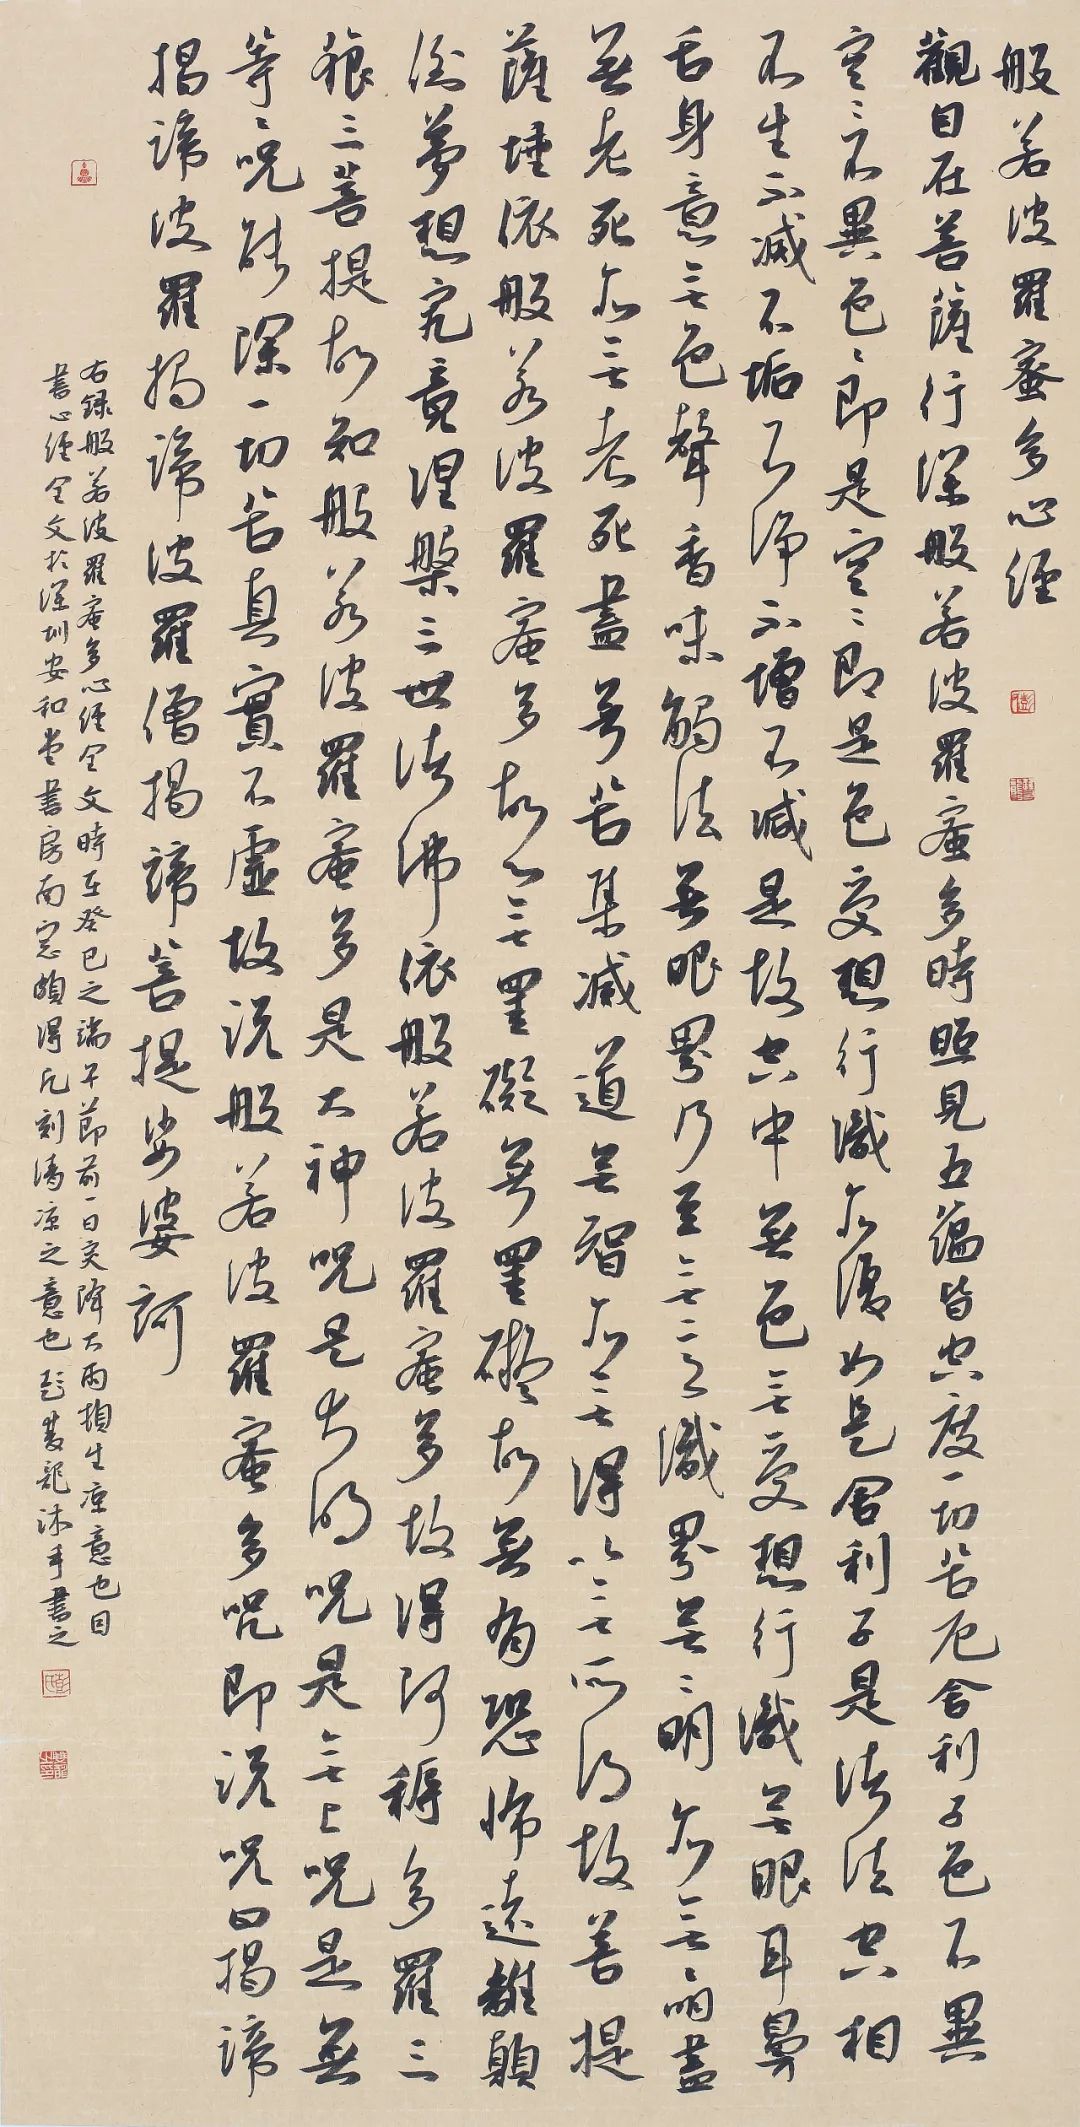 般若波羅蜜多心經
觀自在菩薩行深般若波羅蜜多時照見五蘊皆空度一切苦厄舍利子色不異
空〻不異色〻即是空〻即是色受想行識亦復如是舍利子是諸法空相
不生不滅不垢不淨不增不減是故空中無色無受想行識無眼耳鼻
舌身意無色聲香味觸法無眼界乃至無意識界無〻明亦無〻明盡
無老死亦無老死盡無苦集滅道無智亦無得以無所得故菩提
薩埵依般若波羅蜜多故心無罣礙無罣礙故無有恐怖遠離顛
倒夢想究竟涅槃三世諸佛依般若波羅蜜多故得阿耨多羅三
藐三菩提故知般若波羅蜜多是大神咒是大明咒是無上咒是無
等〻咒能除一切苦真實不虛故說般若波羅蜜多咒即說咒曰揭諦
揭諦波羅揭諦波羅僧揭諦菩提娑婆訶
右錄般若波羅蜜多心經全文時在癸巳之端午節前一日突降大雨頓生涼意也因
書心經全文於深圳安和堂書房南窗頗得片刻清涼之意也彭雙龍沐手書之